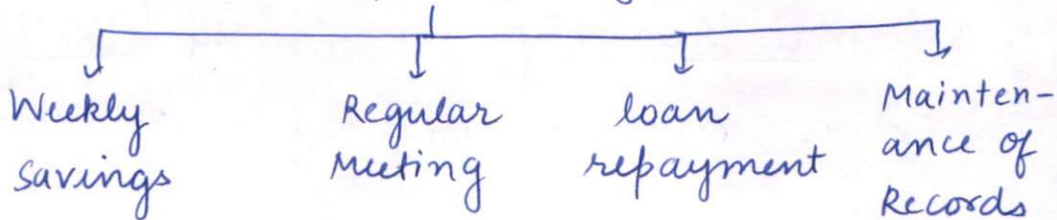 Weekly savings
Regular Meeting
loan repayment
Mainten-
ance of
Records